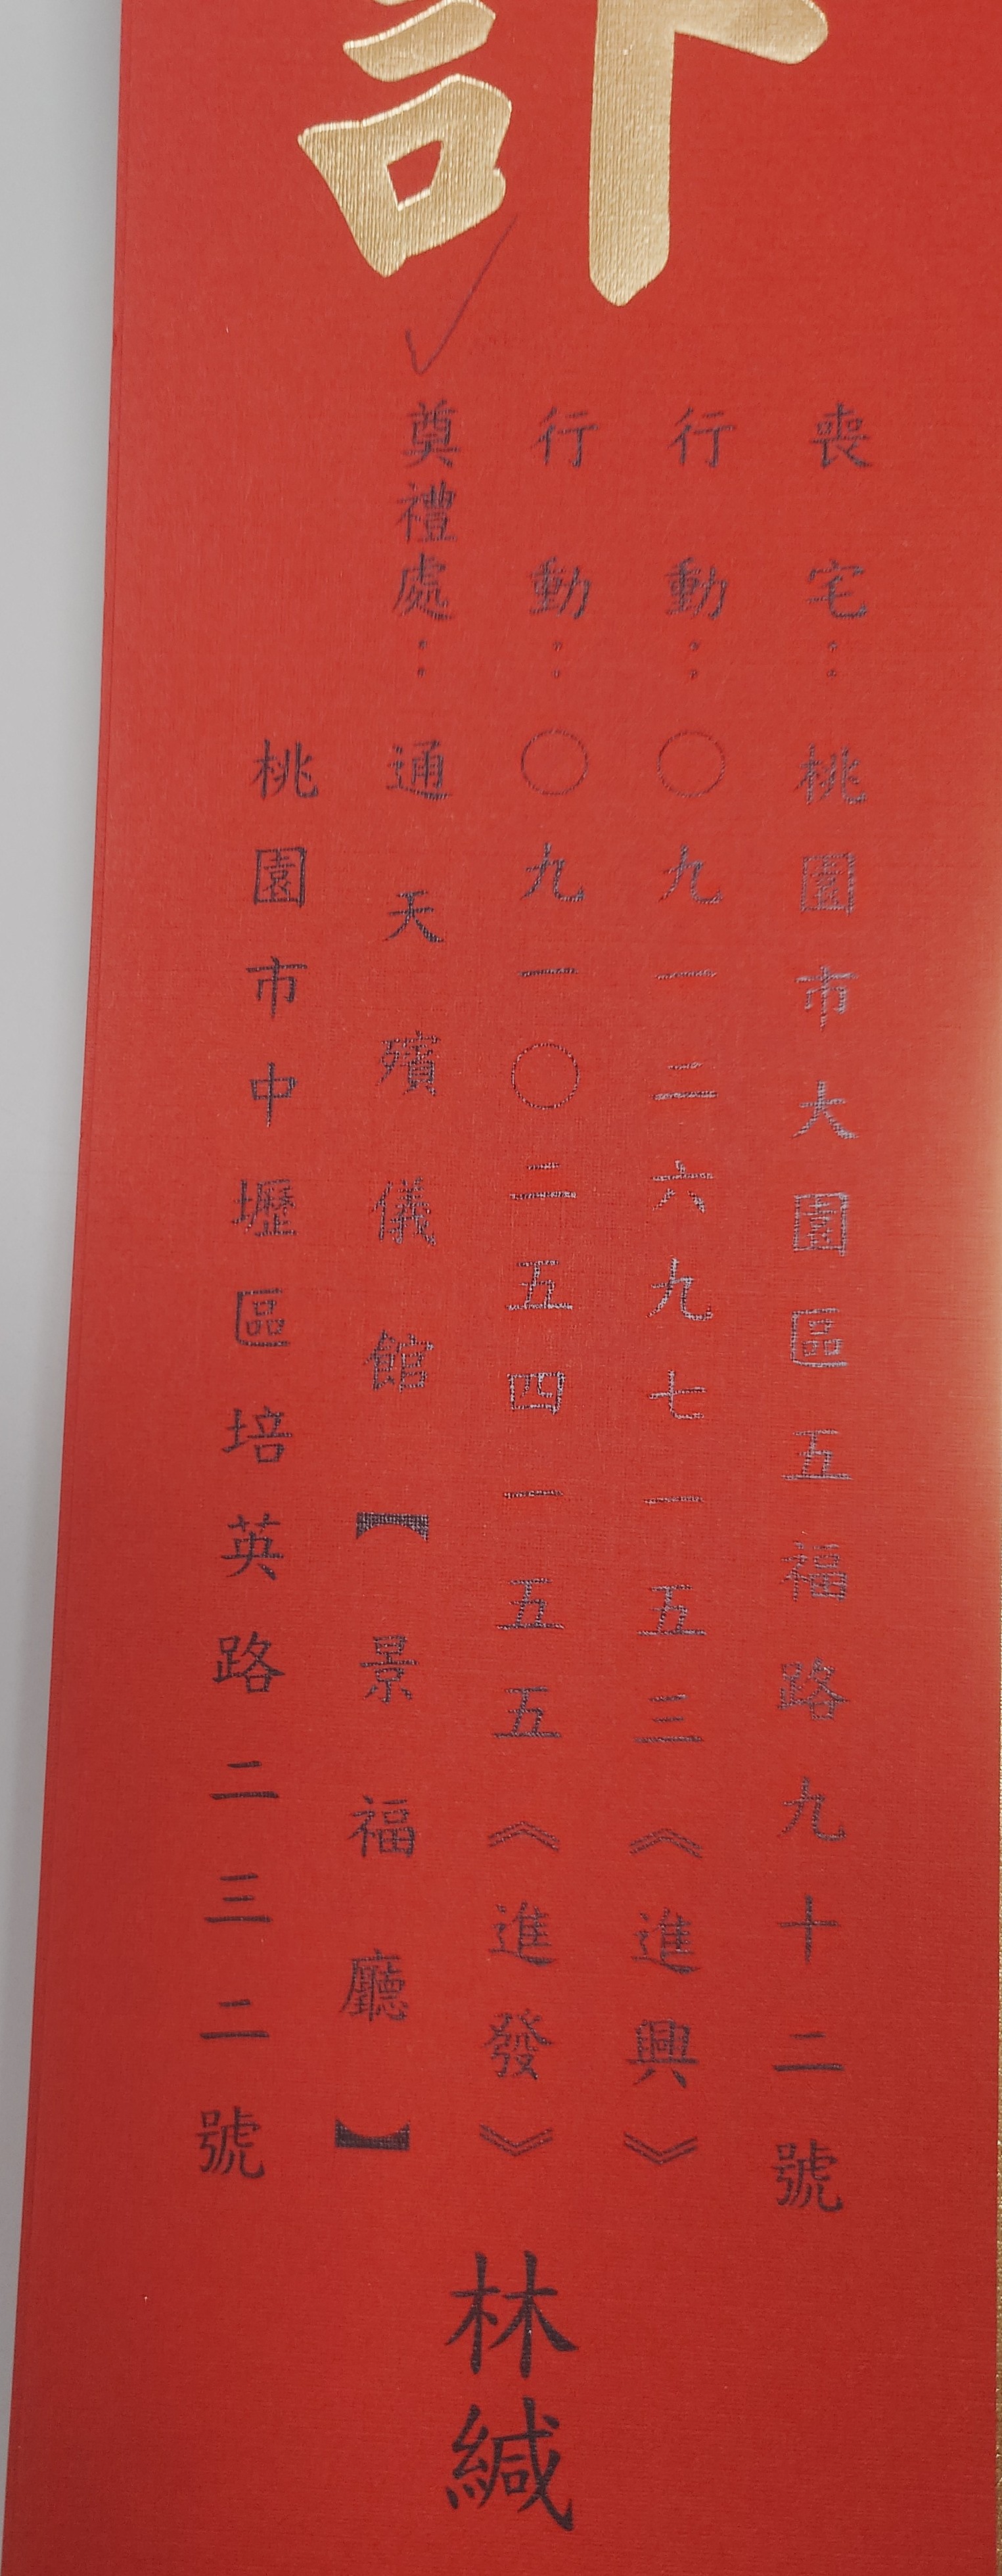 訃
喪宅：桃園市大園區五福路九十二號
行動：〇九一二六九七一五三《進興》
行動：〇九一〇二五四一五五《進發》
奠禮處：通天殯儀館【景福廳】
桃園市中壢區培英路二三二號
林緘